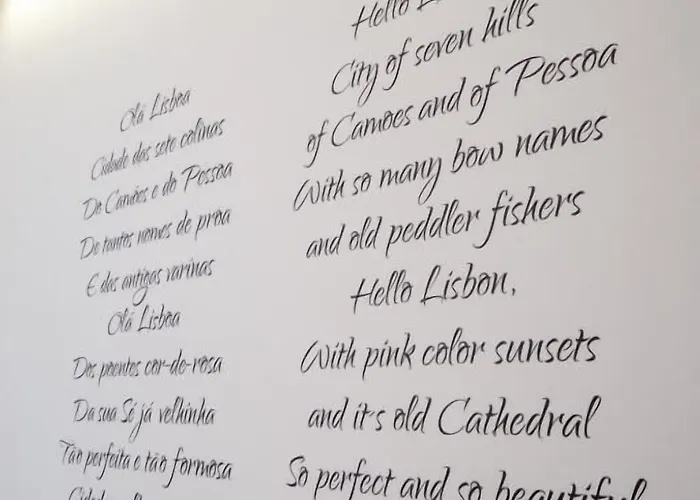 Olá Lisboa
Cidade das sete colinas
De Camões e do Pessoa
De tantos nomes de proa
E das antigas varinas
Olá Lisboa
Dos poentes cor-de-rosa
Da sua Sé já velhinha
Tão perfeita e tão formosa
Hello
City of seven hills
of Camoes and of Pessoa
With so many bow names
and old peddler fishers
Hello Lisbon,
With pink color sunsets
and it's old Cathedral
So perfect and so beautiful